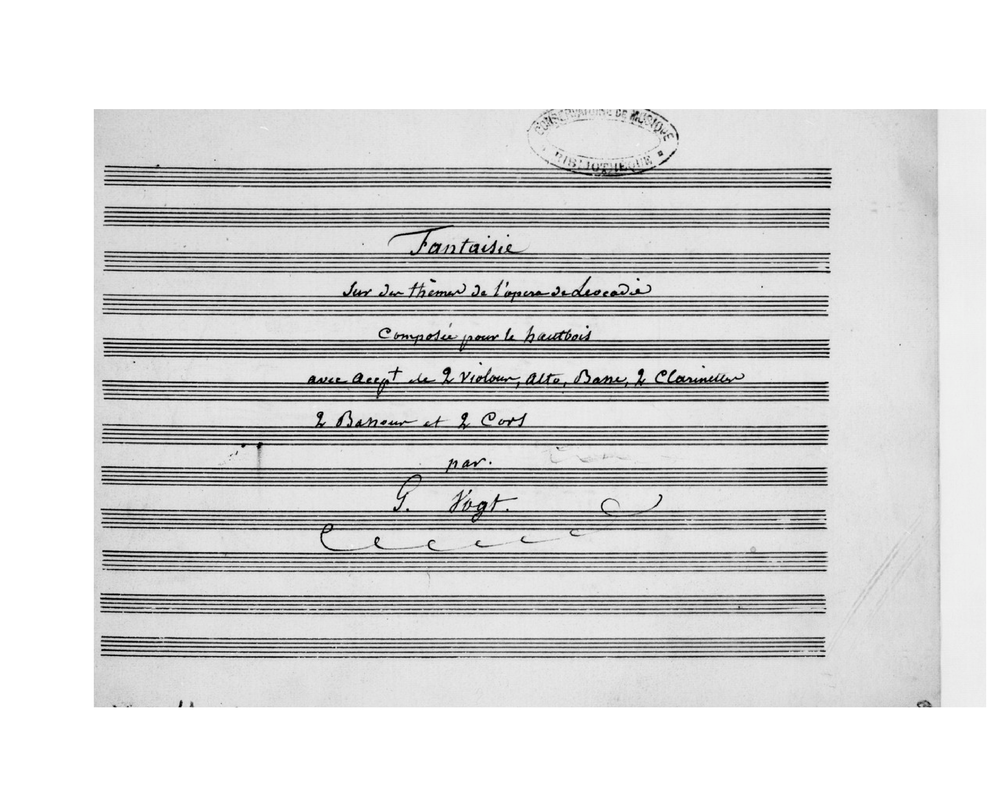 CONSERVATOIRE DE MUSIQUE
BIBLIOTHÈQUE
Fantaisie
Sur des thêmes de l'opera de Leocadie
Composée pour le hautbois
avec accpt de 2 Violons, Alto, Basse, 2 Clarinettes
2 Bassons et 2 Cors
par.
G. Vogt.